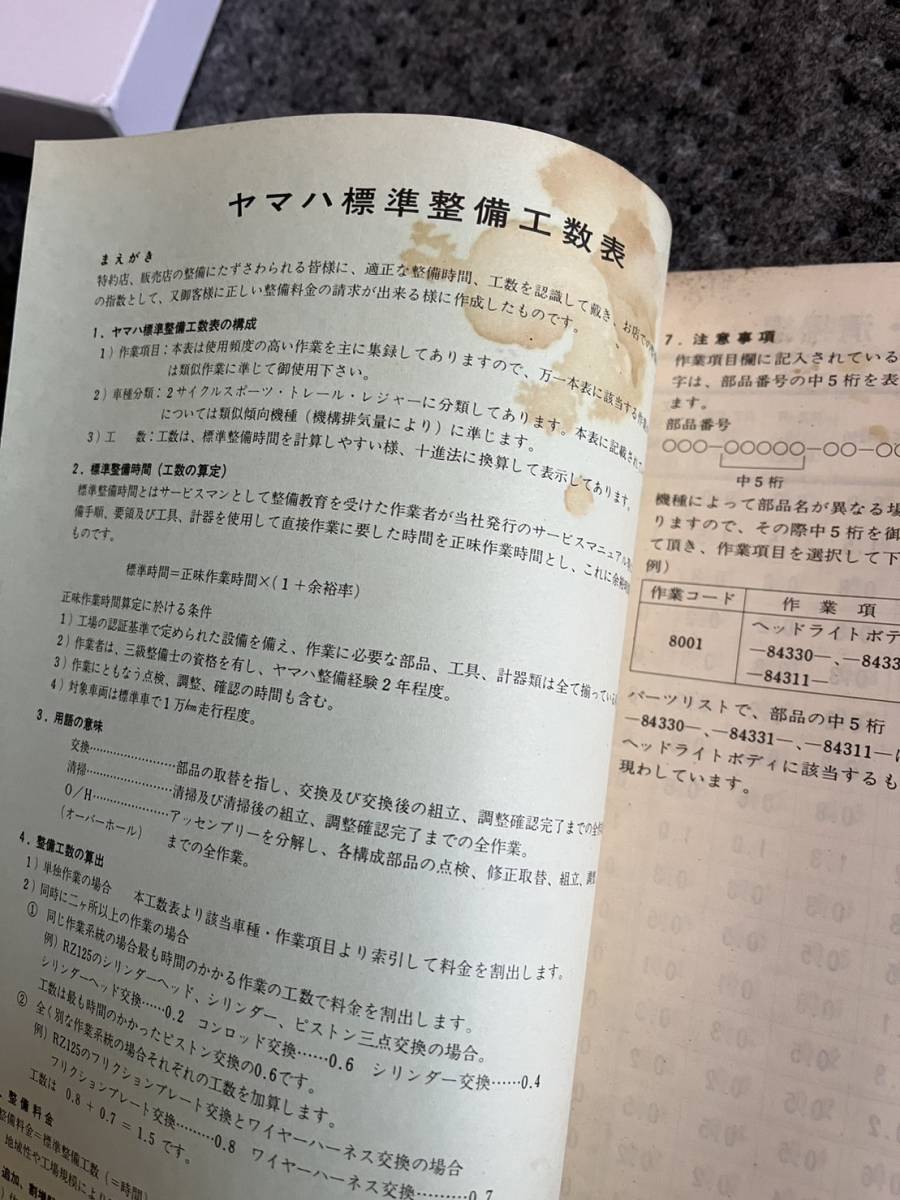 ヤマハ標準整備工数表
まえがき
特約店、販売店の整備にたずさわられる皆様に、適正な整備時間、工数を認識して戴き、お店での
の指数として、又御客様に正しい整備料金の請求が出来る様に作成したものです。
1．ヤマハ標準整備工数表の構成
1）作業項目：本表は使用頻度の高い作業を主に集録してありますので、万一本表に該当する作業
は類似作業に準じて御使用下さい。
2）車種分類：2サイクルスポーツ・トレール・レジャーに分類してあります。本表に記載されて
については類似傾向機種（機構排気量により）に準じます。
3）工　数：工数は、標準整備時間を計算しやすい様、十進法に換算して表示してあります。
2．標準整備時間（工数の算定）
標準整備時間とはサービスマンとして整備教育を受けた作業者が当社発行のサービスマニュアル
備手順、要領及び工具、計器を使用して直接作業に要した時間を正味作業時間とし、これに余裕
ものです。
標準時間＝正味作業時間×（1＋余裕率）
正味作業時間算定に於ける条件
1）工場の認証基準で定められた設備を備え、作業に必要な部品、工具、計器類は全て揃っている
2）作業者は、三級整備士の資格を有し、ヤマハ整備経験2年程度。
3）作業にともなう点検、調整、確認の時間も含む。
4）対象車両は標準車で1万km走行程度。
3．用語の意味
交換……………………部品の取替を指し、交換及び交換後の組立、調整確認完了までの全作
清掃……………………清掃及び清掃後の組立、調整確認完了までの全作業。
O/H……………………アッセンブリーを分解し、各構成部品の点検、修正取替、組立、調
（オーバーホール）　までの全作業。
4．整備工数の算出
1）単独作業の場合　本工数表より該当車種・作業項目より索引して料金を割出します。
2）同時に二ヶ所以上の作業の場合
① 同じ作業系統の場合最も時間のかかる作業の工数で料金を割出します。
例）RZ125のシリンダーヘッド、シリンダー、ピストン三点交換の場合。
シリンダーヘッド交換……0.2 コンロッド交換……0.6 シリンダー交換……0.4
工数は最も時間のかかったピストン交換の0.6です。
② 全く別な作業系統の場合それぞれの工数を加算します。
例）RZ125のフリクションプレート交換とワイヤーハーネス交換の場合
フリクションプレート交換………0.8 ワイヤーハーネス交換………0.7
工数は 0.8＋0.7＝1.5です。
整備料金
整備料金＝標準整備工数（＝時間）
地域性や工場規模により
追加、割増
7．注意事項
作業項目欄に記入されている
字は、部品番号の中5桁を表
ます。
部品番号
○○○―○○○○○―○○―○○
中5桁
機種によって部品名が異なる場
りますので、その際中5桁を御
て頂き、作業項目を選択して下
例）
作業コード　作業項
8001　ヘッドライトボデ
―84330―、―8433
―84311―
パーツリストで、部品の中5桁
―84330―、―84331―、―84311―は
ヘッドライトボディに該当するも
現わしています。